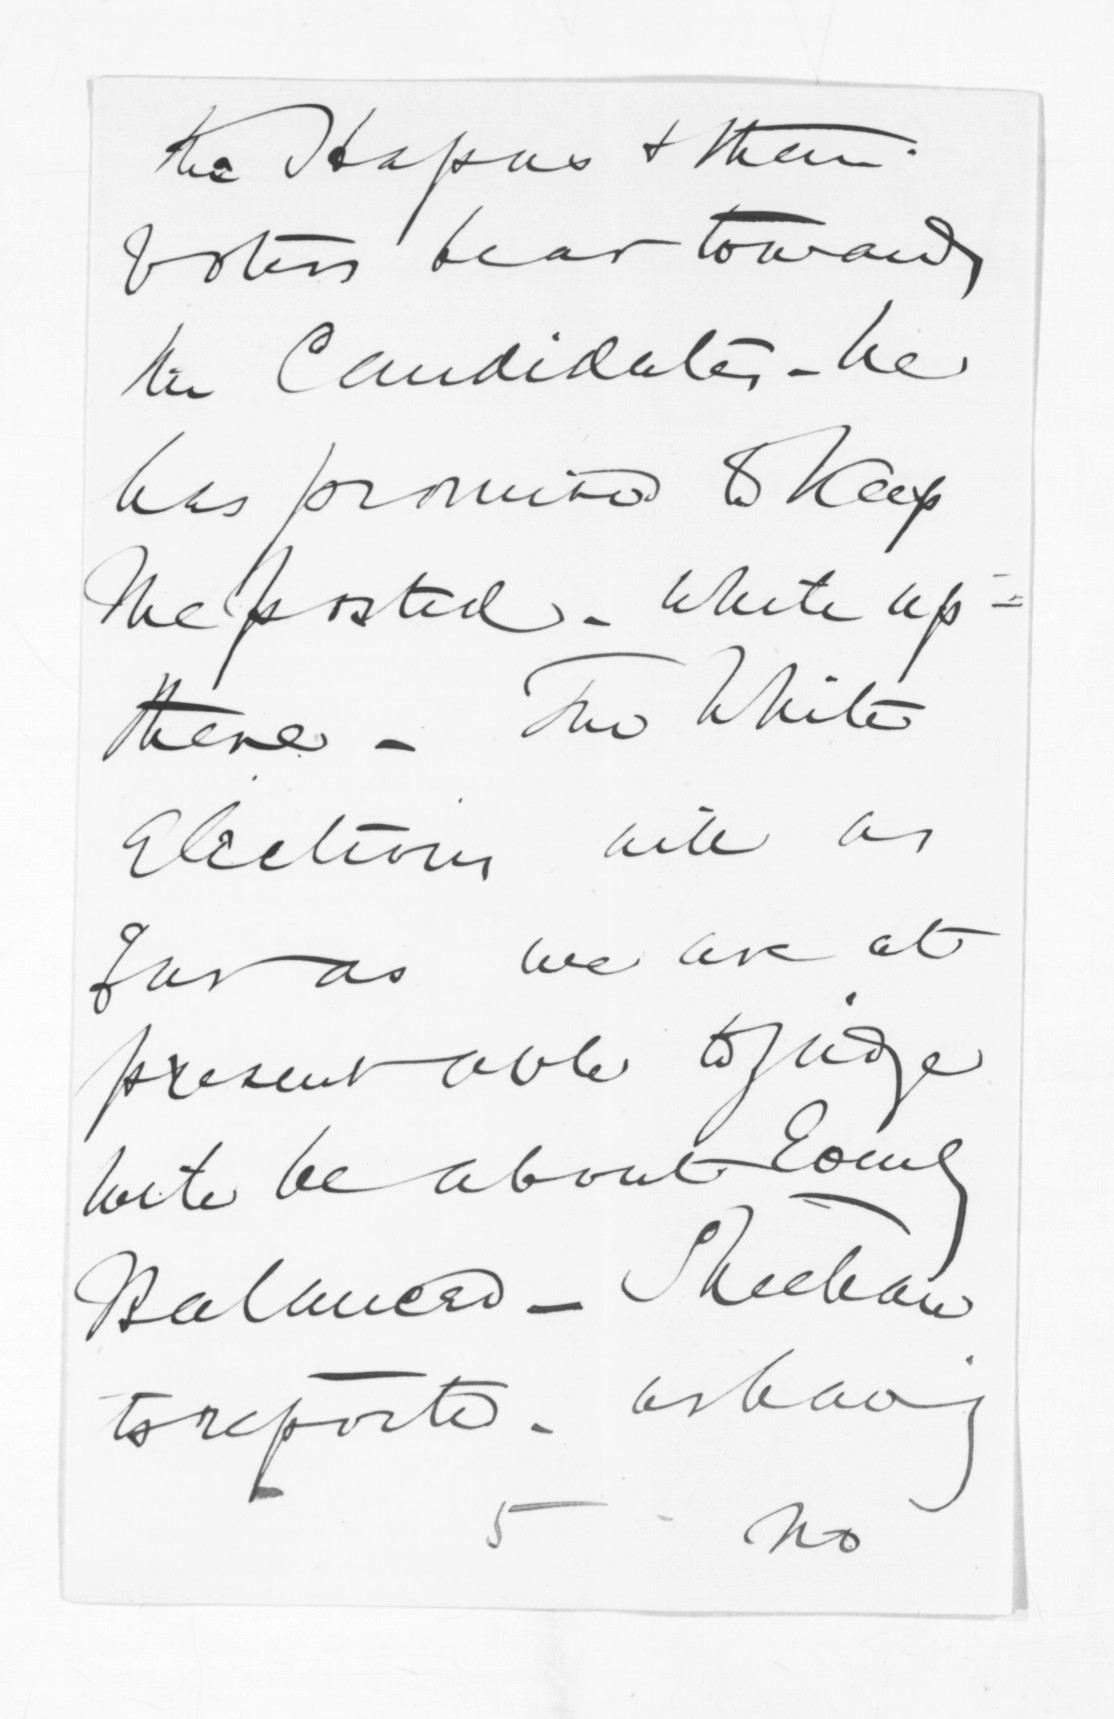 the Hapus & their
voters bear towards
the Candidates - he
has promised to keep
me posted - while up =
there - The White
Elections will as
far as we are at
present able to judge
will be about Equally
Balanced - Sheehan
is reported - as having
5 no